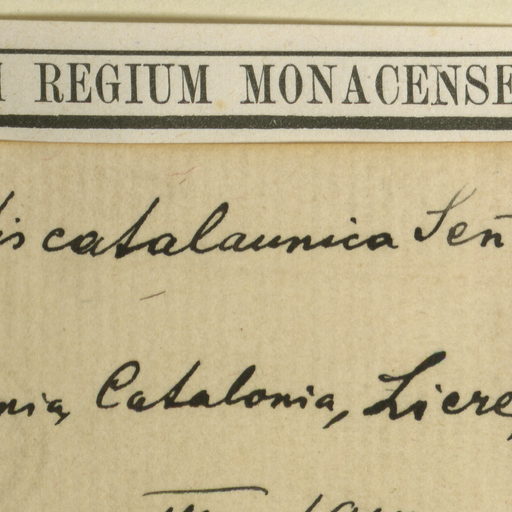 REGIUM MONACENSE
catalaunica Señ
Catalonia, Licre